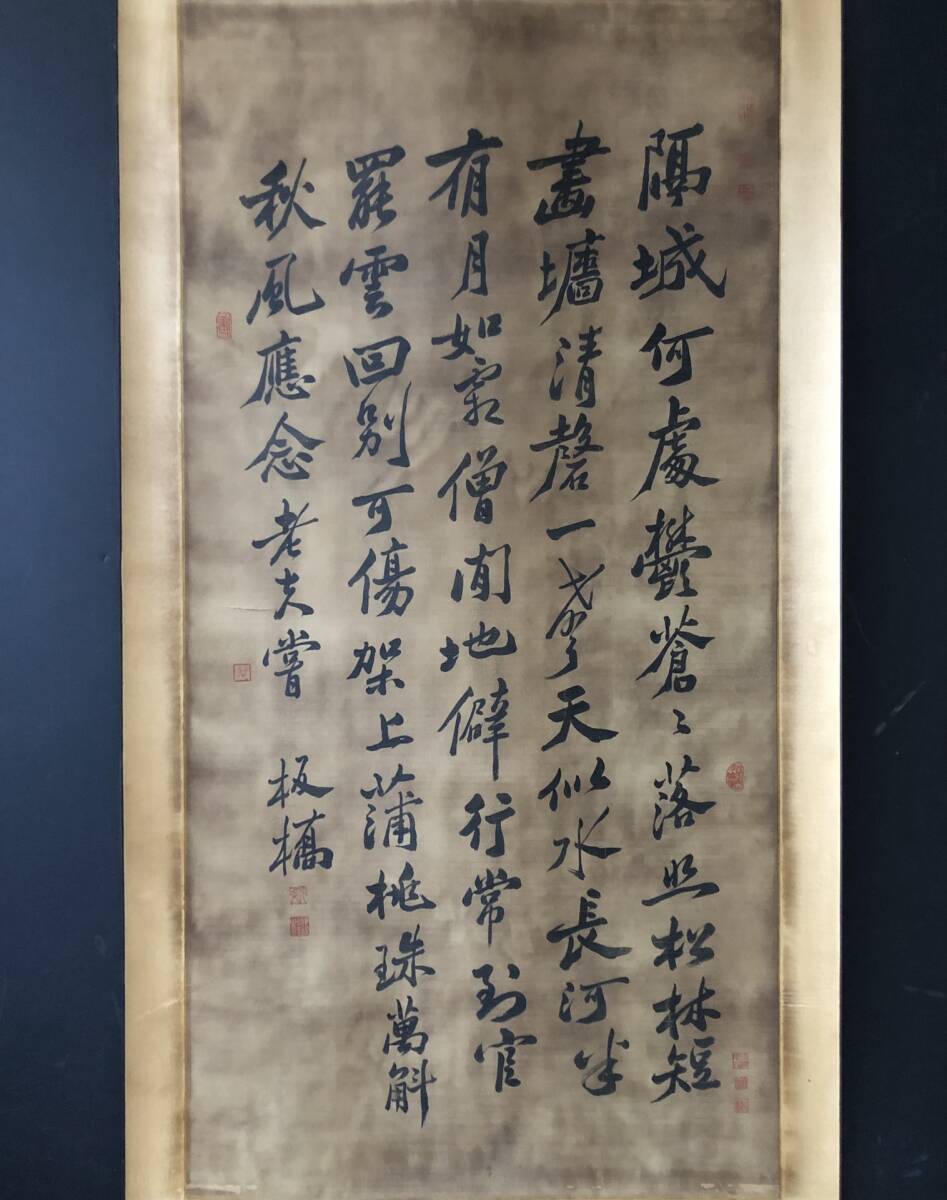 隔城何處鬱蒼〻落照松林短
畫墻清磬一聲天似水長河半
夜月如霜僧閒地僻行常到官
罷雲回別可傷架上蒲桃珠萬斛
秋風應念老夫嘗
板橋